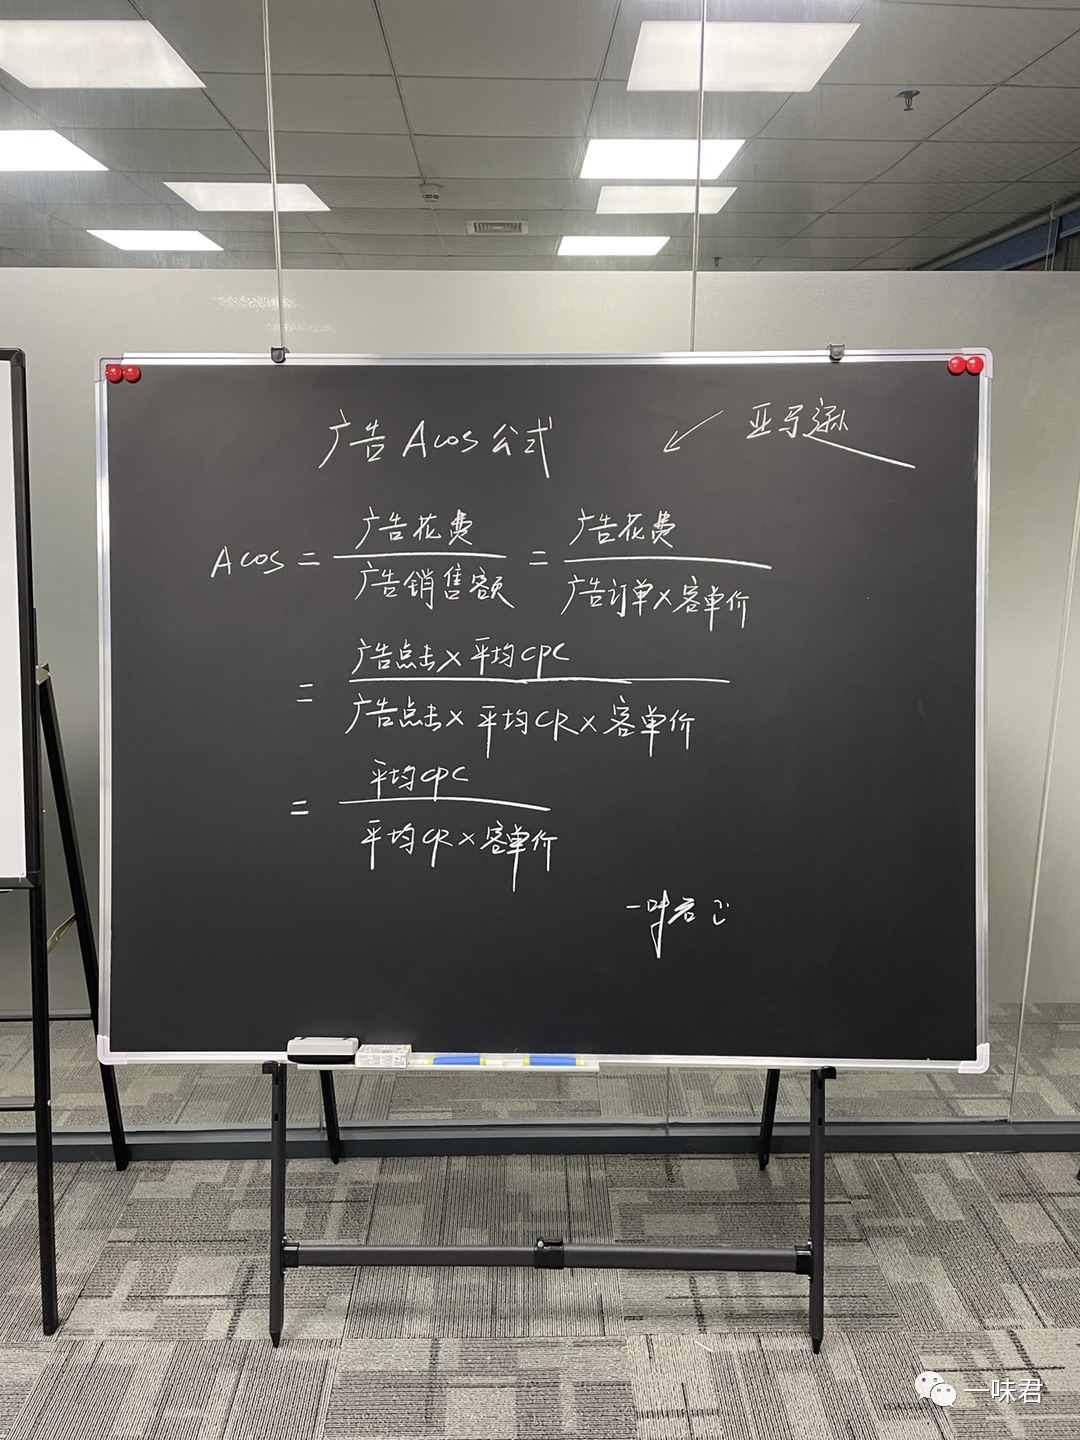 广告 Acos 公式
亚马逊
Acos = 广告花费 = 广告花费
广告销售额 广告订单×客单价
= 广告点击×平均CPC
广告点击×平均CR×客单价
= 平均CPC
平均CR×客单价
一味君
一味君